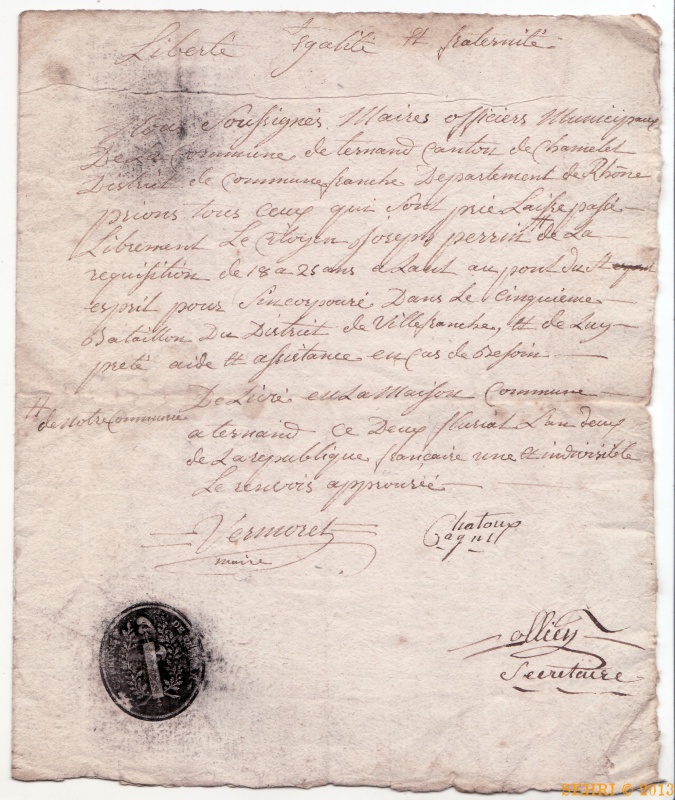 Liberté Egalité et fraternité
Nous Soussignés Maires officiers Municipaux
De La Commune de ternand Canton de Chamelet
District de Commune franche Departement de Rhône
prions tous ceux qui sont prie Laisse passé
Librement Le Citoyen joseph perrin # de La
requisition de 18 a 25 ans a Laut au pont du St
esprit pour Sincorpouré Dans Le Cinquieme
Bataillon Du District de Villefranche, et de Luy
preté aide et assistance en cas de Besoin
# de notre Commune
De Livré en La Maison Commune
a ternand ce Deux floriat Lan deux
de La republique francaire une et indivisible
Le renvois approuvée
Vermoret
maire
Chatoux
Gagnu
olliery
Secretaire
BEHRI © 2013